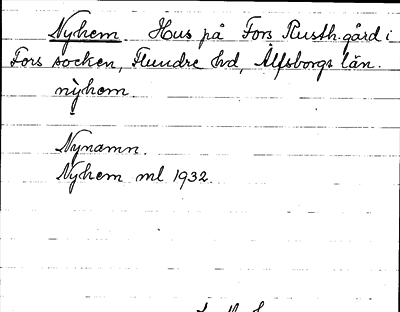 Nyhem. Hus på Fors Rusth.gård i
Fors socken, Flundre hd, Älfsborgs län.
nỳhem.
Nynamn.
Nyhem ml 1932.